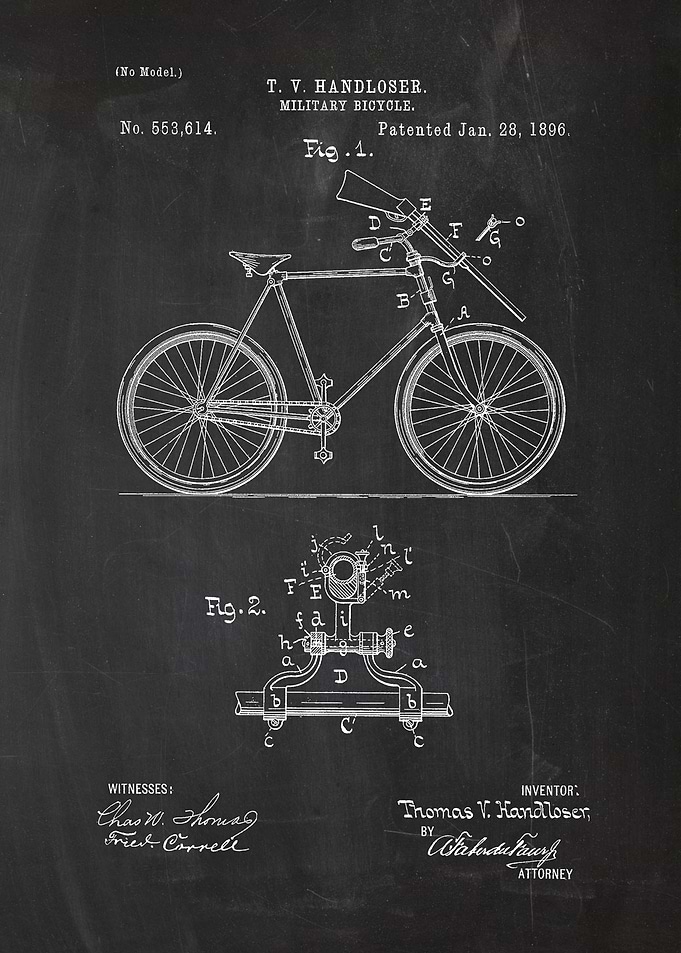 (No Model.)
T. V. HANDLOSER.
MILITARY BICYCLE.
No. 553,614.
Patented Jan. 28, 1896.
Fig. 1.
E
D
F
o
G
C
o
G
B
A
j
l
n
l'
i'
F
E
m
Fig. 2.
f
d
i
e
h
a
a
D
b
b
C'
c
c
WITNESSES:
INVENTOR:
Chas W. Thomas
Thomas V. Handloser,
Fried. Correll
BY
ATTORNEY